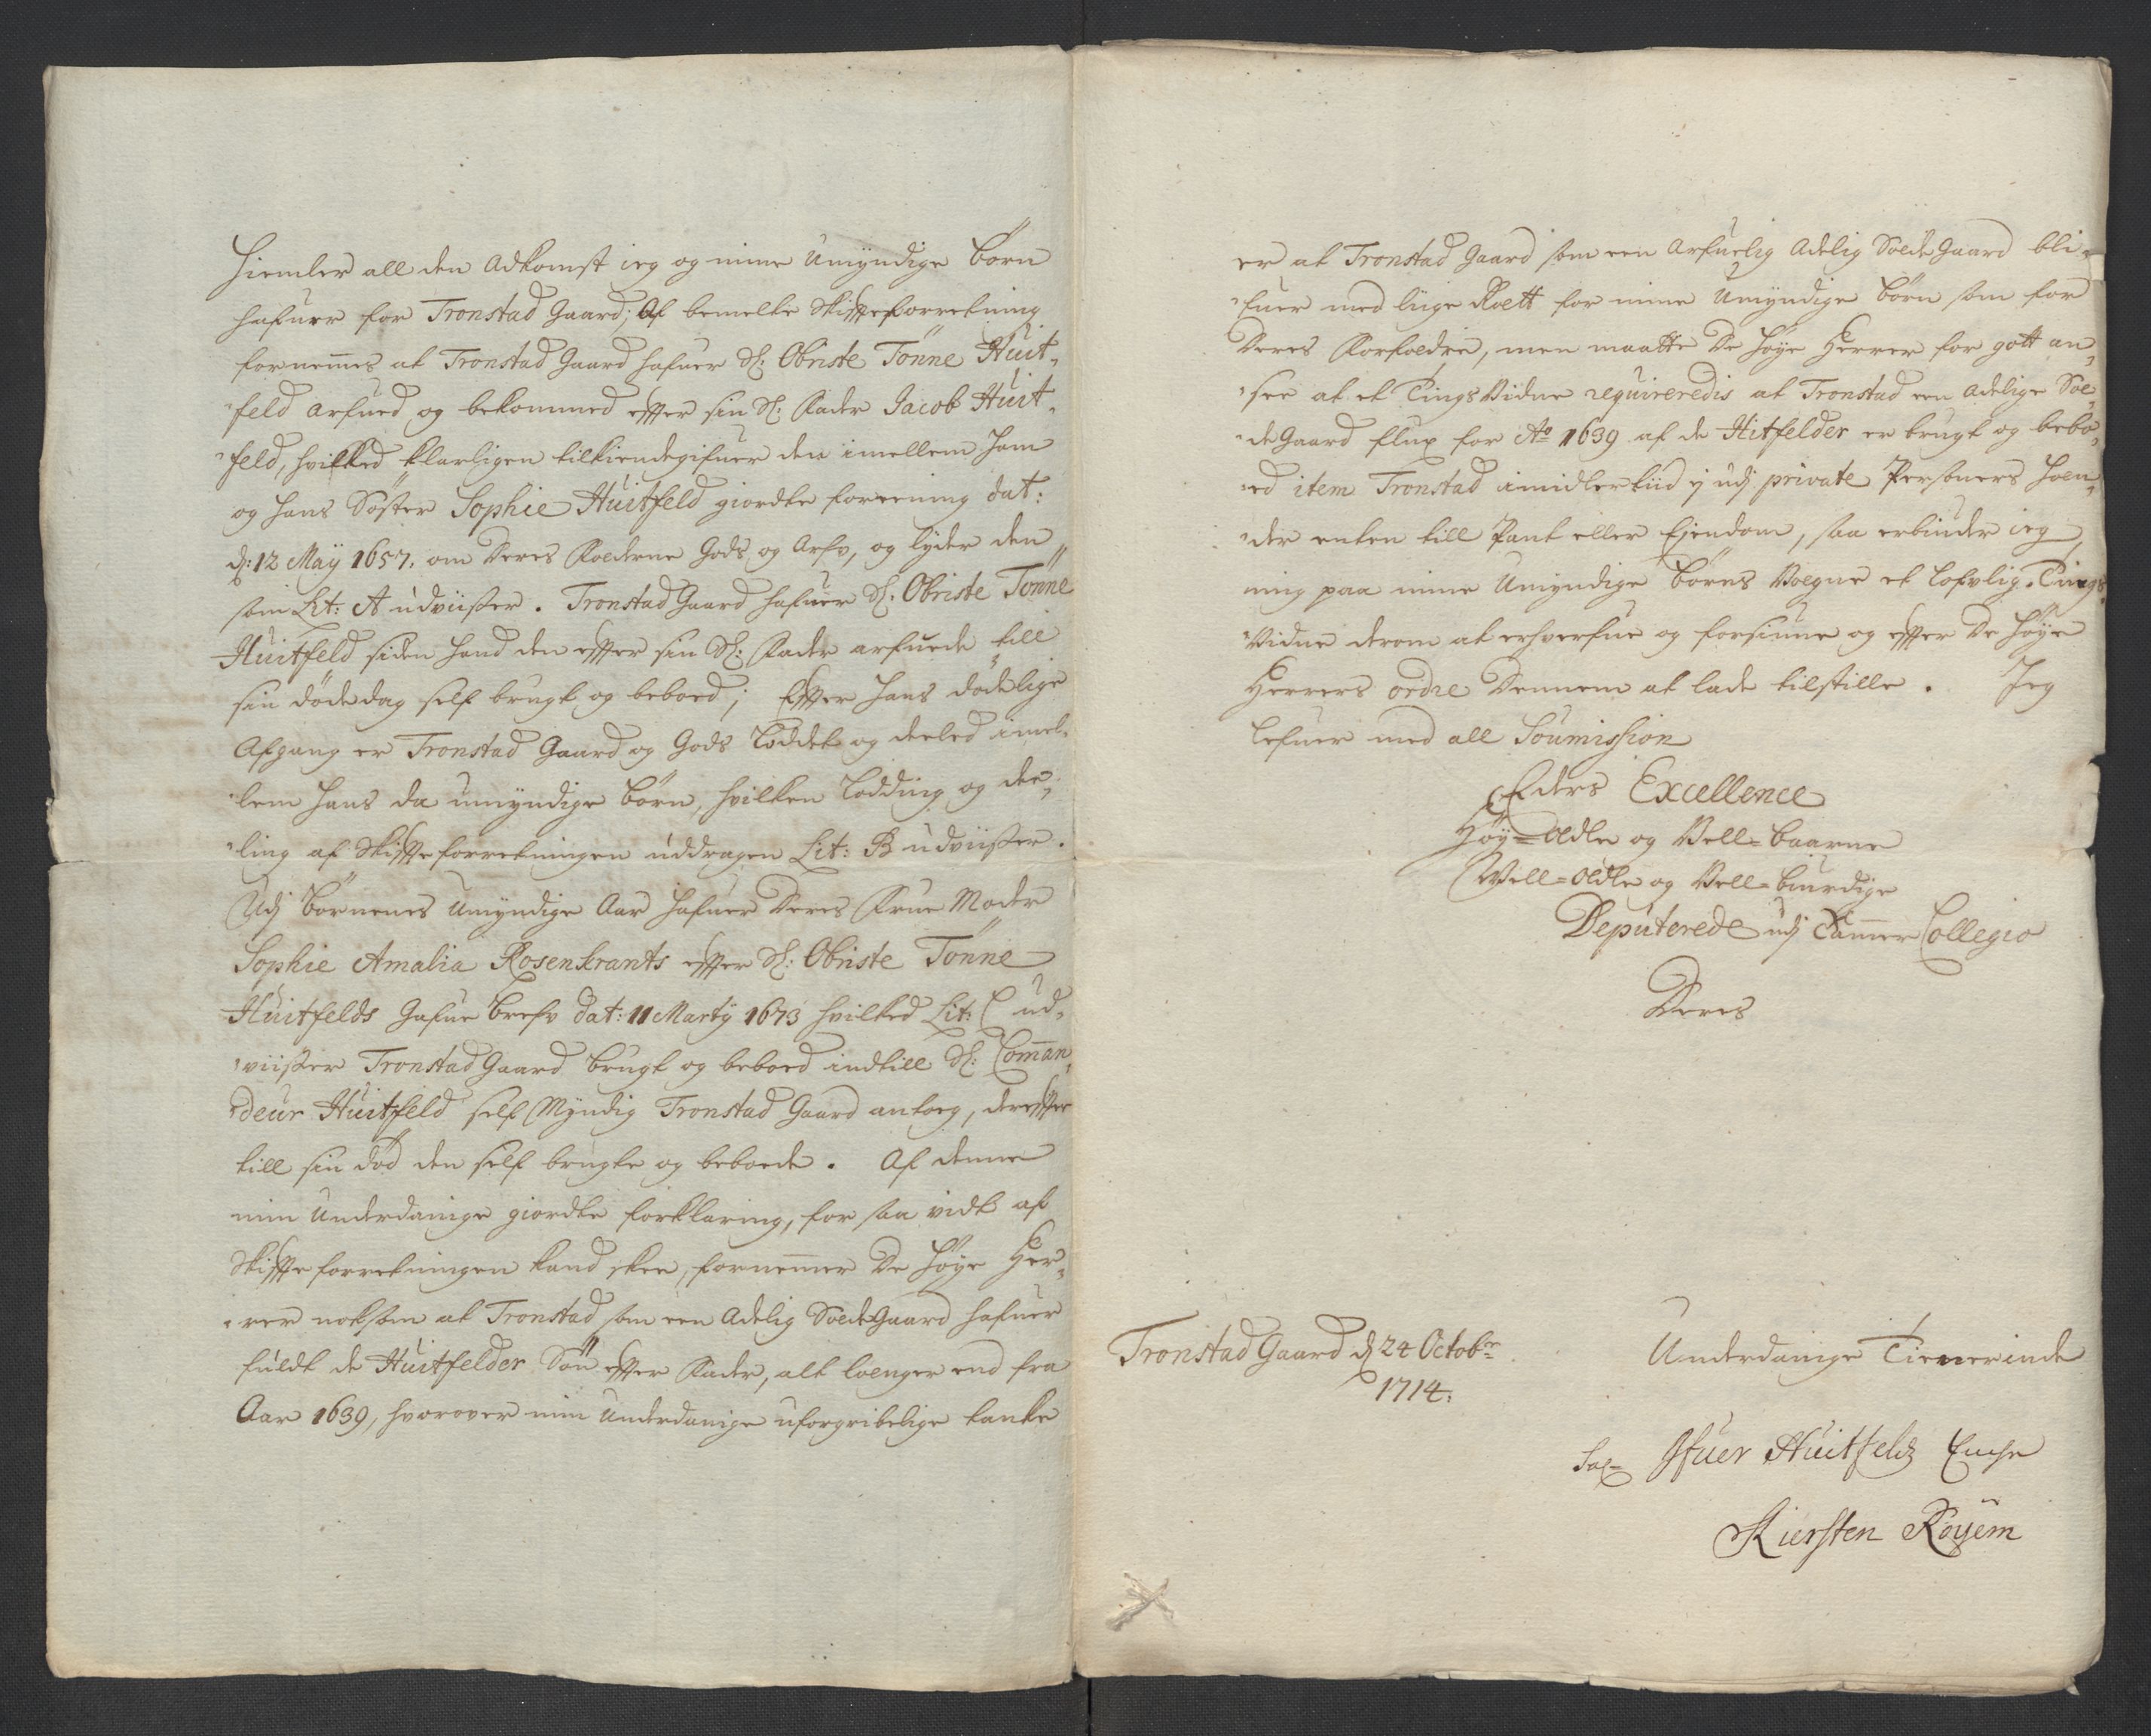 Hiemler all den Adkomst ieg og mine Umÿndige børn
hafuer for Tronstad Gaard; Af bemelte Skifteforretning
fornemmes at Tronstad Gaard hafuer Sl: Obriste Tønne Huit„
„feld arfued og bekommed efter sin Sl: Fader Jacob Huit„
„feld, hvilked klarligen tilkiendegifuer den imellem ham
og hans Søster Sophie Huitfeld giordte foreening dat:
d: 12 Maÿ 1657. om Deres Fæderne Gods og Arfv, og lÿder den
som Lit: A udviißer. Tronstad Gaard hafuer Sl: Obriste Tønne
Huitfeld siden hand den efter sin Sl: Fader arfuede till
sin dødedag self brugt og beboed; Efter hans dødelige
Afgang er Tronstad Gaard og Gods Loddet og deeled imel„
„lem hans da umÿndige børn, hvilken Lodding og dee„
„ling af Skifteforretningen uddragen Lit: B udviißer.
Udj børnenes Umÿndige Aar hafuer Deres Frue Moder
Sophie Amalia Rosenkrants efter Sl: Obriste Tønne
Huitfelds Gafue brefv dat: 11 Martÿ 1673 hvilked Lit: C ud„
„viißer Tronstad Gaard brugt og beboed indtill Sl: Comman„
„deur Huitfeld self Mÿndig Tronstad Gaard antoeg, derefter
till sin død den self brugte og beboede. Af denne
min Underdanige giordte forklaring, for saa vidt af
Skifteforretningen kand skee, fornemmer De høÿe Her„
„rer noksom at Tronstad som een Adelig Sædegaard hafuer
fuldt de Huitfelder Søn efter Fader, alt længer end fra
Aar 1639, hvorover min Underdanige uforgribelige tanke
er at Tronstad Gaard som een Arfuelig Adelig Sæde Gaard bli„
„fuer med liige Rætt for mine Umÿndige børn som for
Deres Forfædre, men maatte De høÿe Herrer for gott an„
„see at et Tings Vidne requireredis at Tronstad een Adelige Sæ„
„de Gaard flux for Ao 1639 af de Hitfelder er brugt og bebo„
„ed item Tronstad imidlertiid ej udj private Persohners hæn„
„der enten till Pant eller Ejendom, saa erbiuder ieg
mig paa mine Umÿndige børns Vægne et lofvlig Tings
Vidne derom at erhverfue og forsiune og efter De høÿe
Herrers ordre Dennem at lade tilstille. Jeg
lefuer med all Soumission
Eders Excellence
Høÿ=Ædle og Vell=baarne
Vell=Ædle og Vell=biurdige
Deputerede udj Cammer Collegio
Deres
Tronstad Gaard d 24 Octobr
1714.
Underdanige Tienerinde
Sal= Ifuer Huitfelds Encke
Kiersten Røÿem